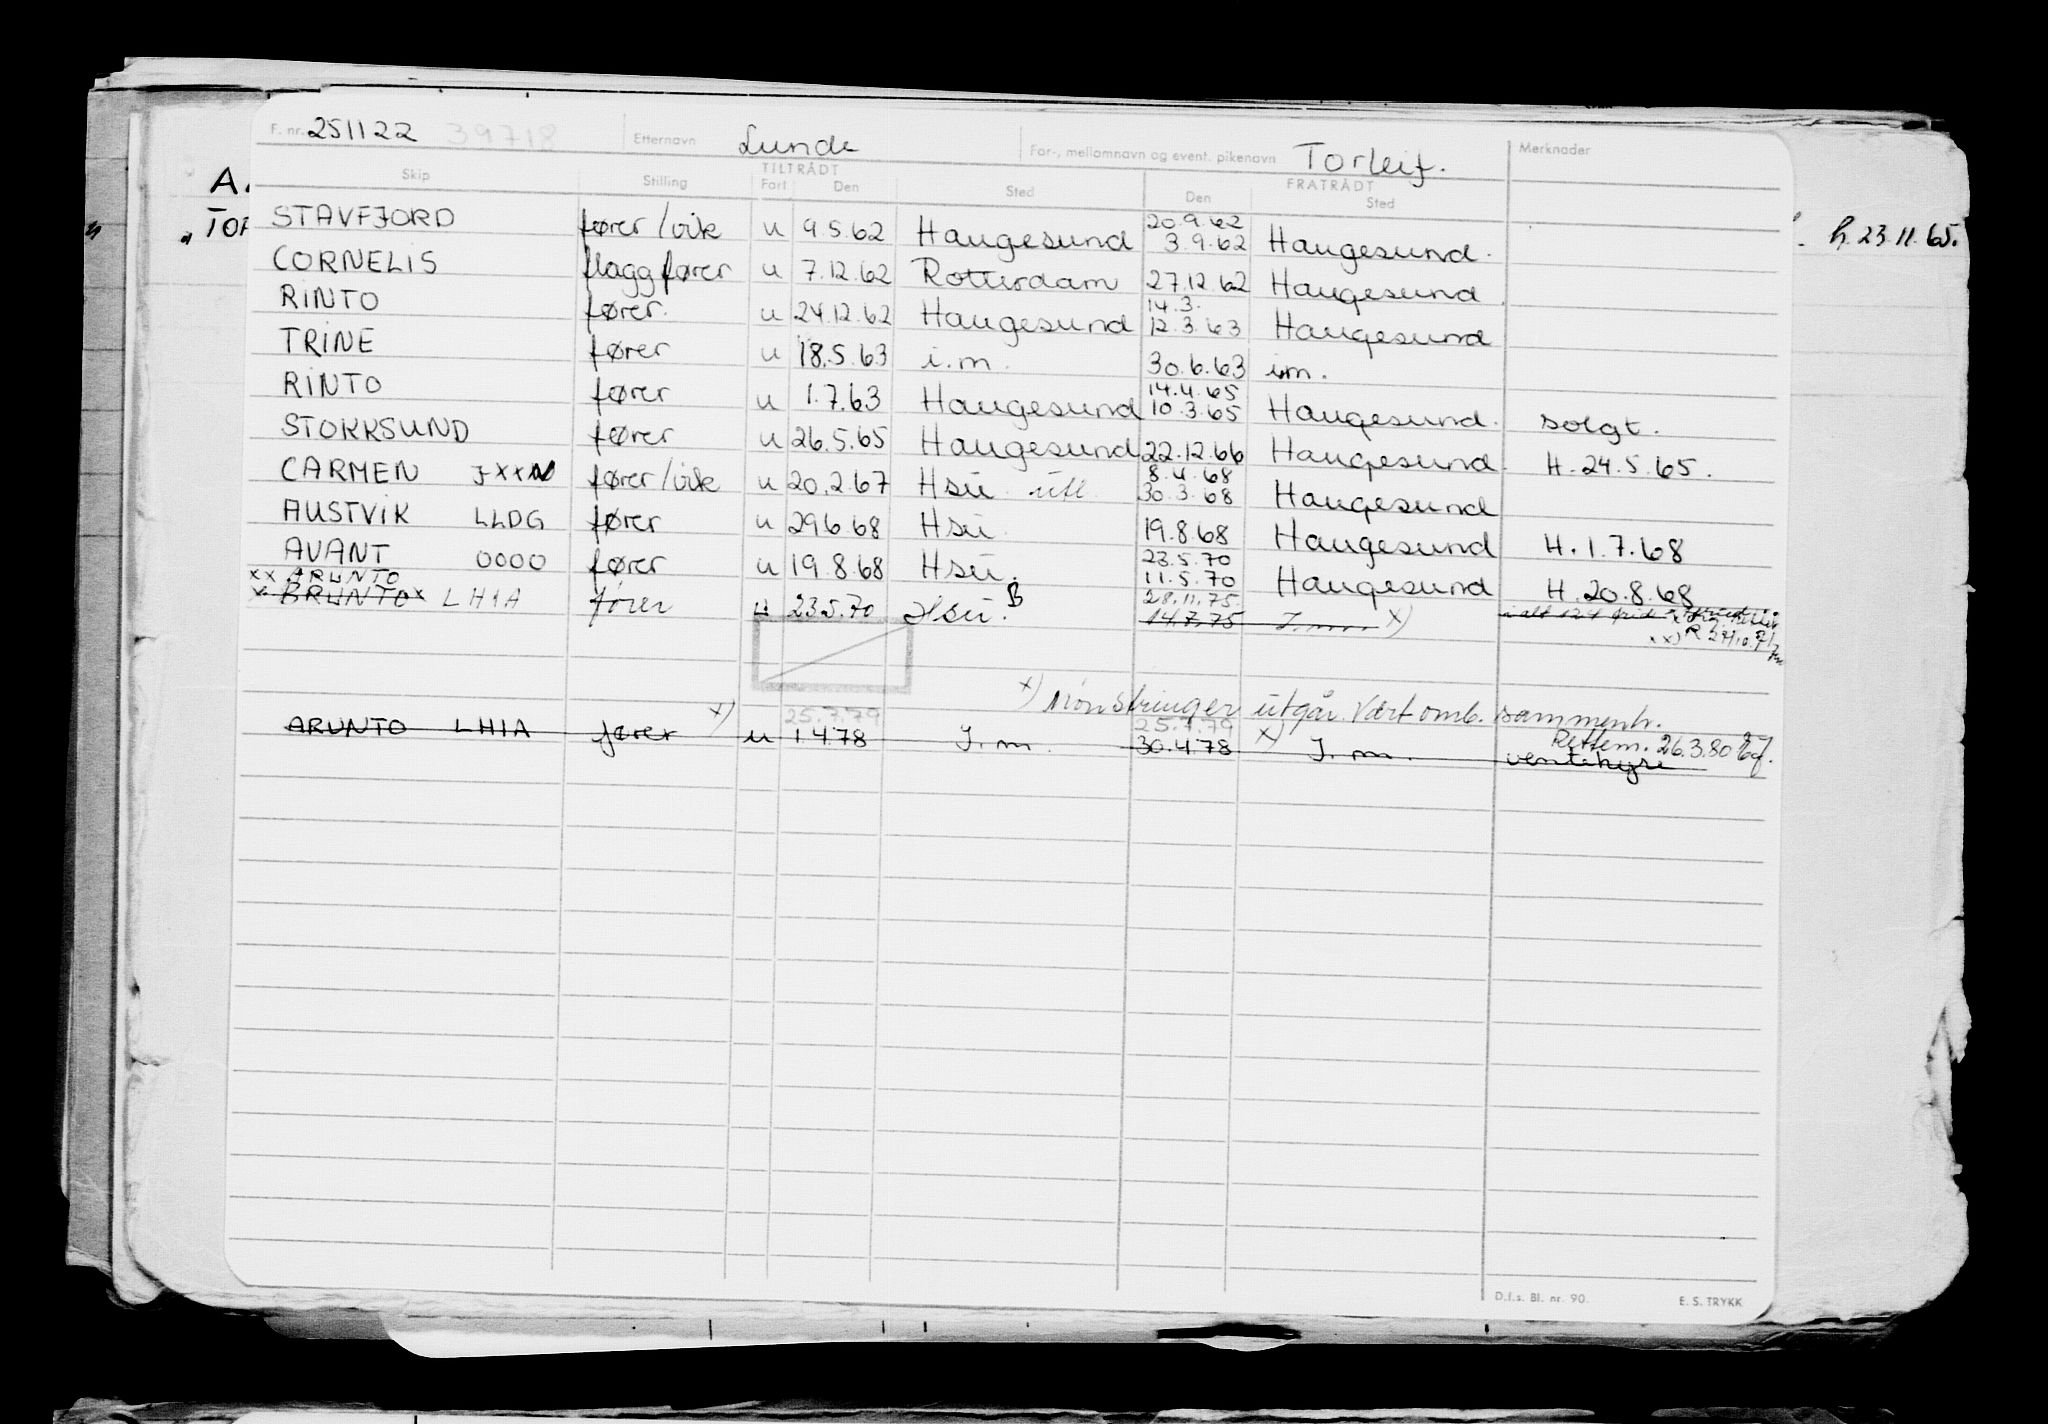 F. nr. 251122 39718 Etternavn Lunde For-, mellomnavn og event. pikenavn Torleif. Merknader
Skip Stilling TILTRÅDT Fart Den Sted FRATRÅDT Den Sted
A.
TOR
h. 23.11.65.
20.9.62
STAVFJORD fører/vik u 9.5.62 Haugesund 3.9.62 Haugesund.
CORNELIS flaggfører u 7.12.62 Rotterdam 27.12.62 Haugesund
14.3.
RINTO fører. u 24.12.62 Haugesund 12.3.63 Haugesund
TRINE fører u 18.5.63 i.m. 30.6.63 i.m.
14.4.65
RINTO fører u 1.7.63 Haugesund 10.3.65 Haugesund. solgt.
STOKKSUND fører u 26.5.65 Haugesund 22.12.66 Haugesund. H. 24.5.65.
8.4.68
CARMEN JXXN fører/vik u 20.2.67 Hsu. utl. 30.3.68 Haugesund
AUSTVIK LLDG fører u 29.6.68 Hsu. 19.8.68 Haugesund H. 1.7.68
23.5.70
AVANT OOOO fører u 19.8.68 Hsu. 11.5.70 Haugesund H. 20.8.68
xx ARUNTO 28.11.75.
x BRUNTO x LHIA fører u 23.5.70 Hsu. B 14.7.75 I.m. x) i alt 124
xx) R 27/10.71
x) Mønstringer utgår. Vært omb. sammenh.
x) 25.7.79 25.7.79 Rettem. 26.3.80
ARUNTO LHIA fører u 1.4.78 I.m. 30.4.78 x) I.m. ventehyre
D.f.s. Bl. nr. 90. E. S. TRYKK